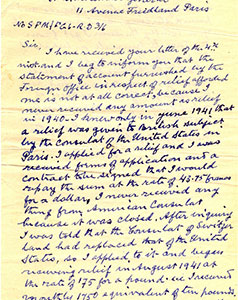 11 Avenue Friedland Paris
Sir,
I have received your letter of the 4th
inst. and I beg to inform you that the
statement of account furnished by the
Foreign Office in respect of relief afforded
me is not at all correct, because I
never received any amount as relief
in 1940. I knew only in June 1941 that
a relief was given to British subject
by the Consulate of the United States in
Paris. I applied for a relief and I was
received. I formed application and a
contract to be signed that I would
repay the sum at the rate of 43.75 francs
for a dollar, I never received any
thing from American Consulat
because it was closed. After inquiry
I was told that the Consulate of Switzer
land had replaced that of the United
States, so I applied to it and began
receiving relief in August 1941 at
the rate of 175 for a pound. i.e. I received
monthly 1750 equivalent of ten pounds